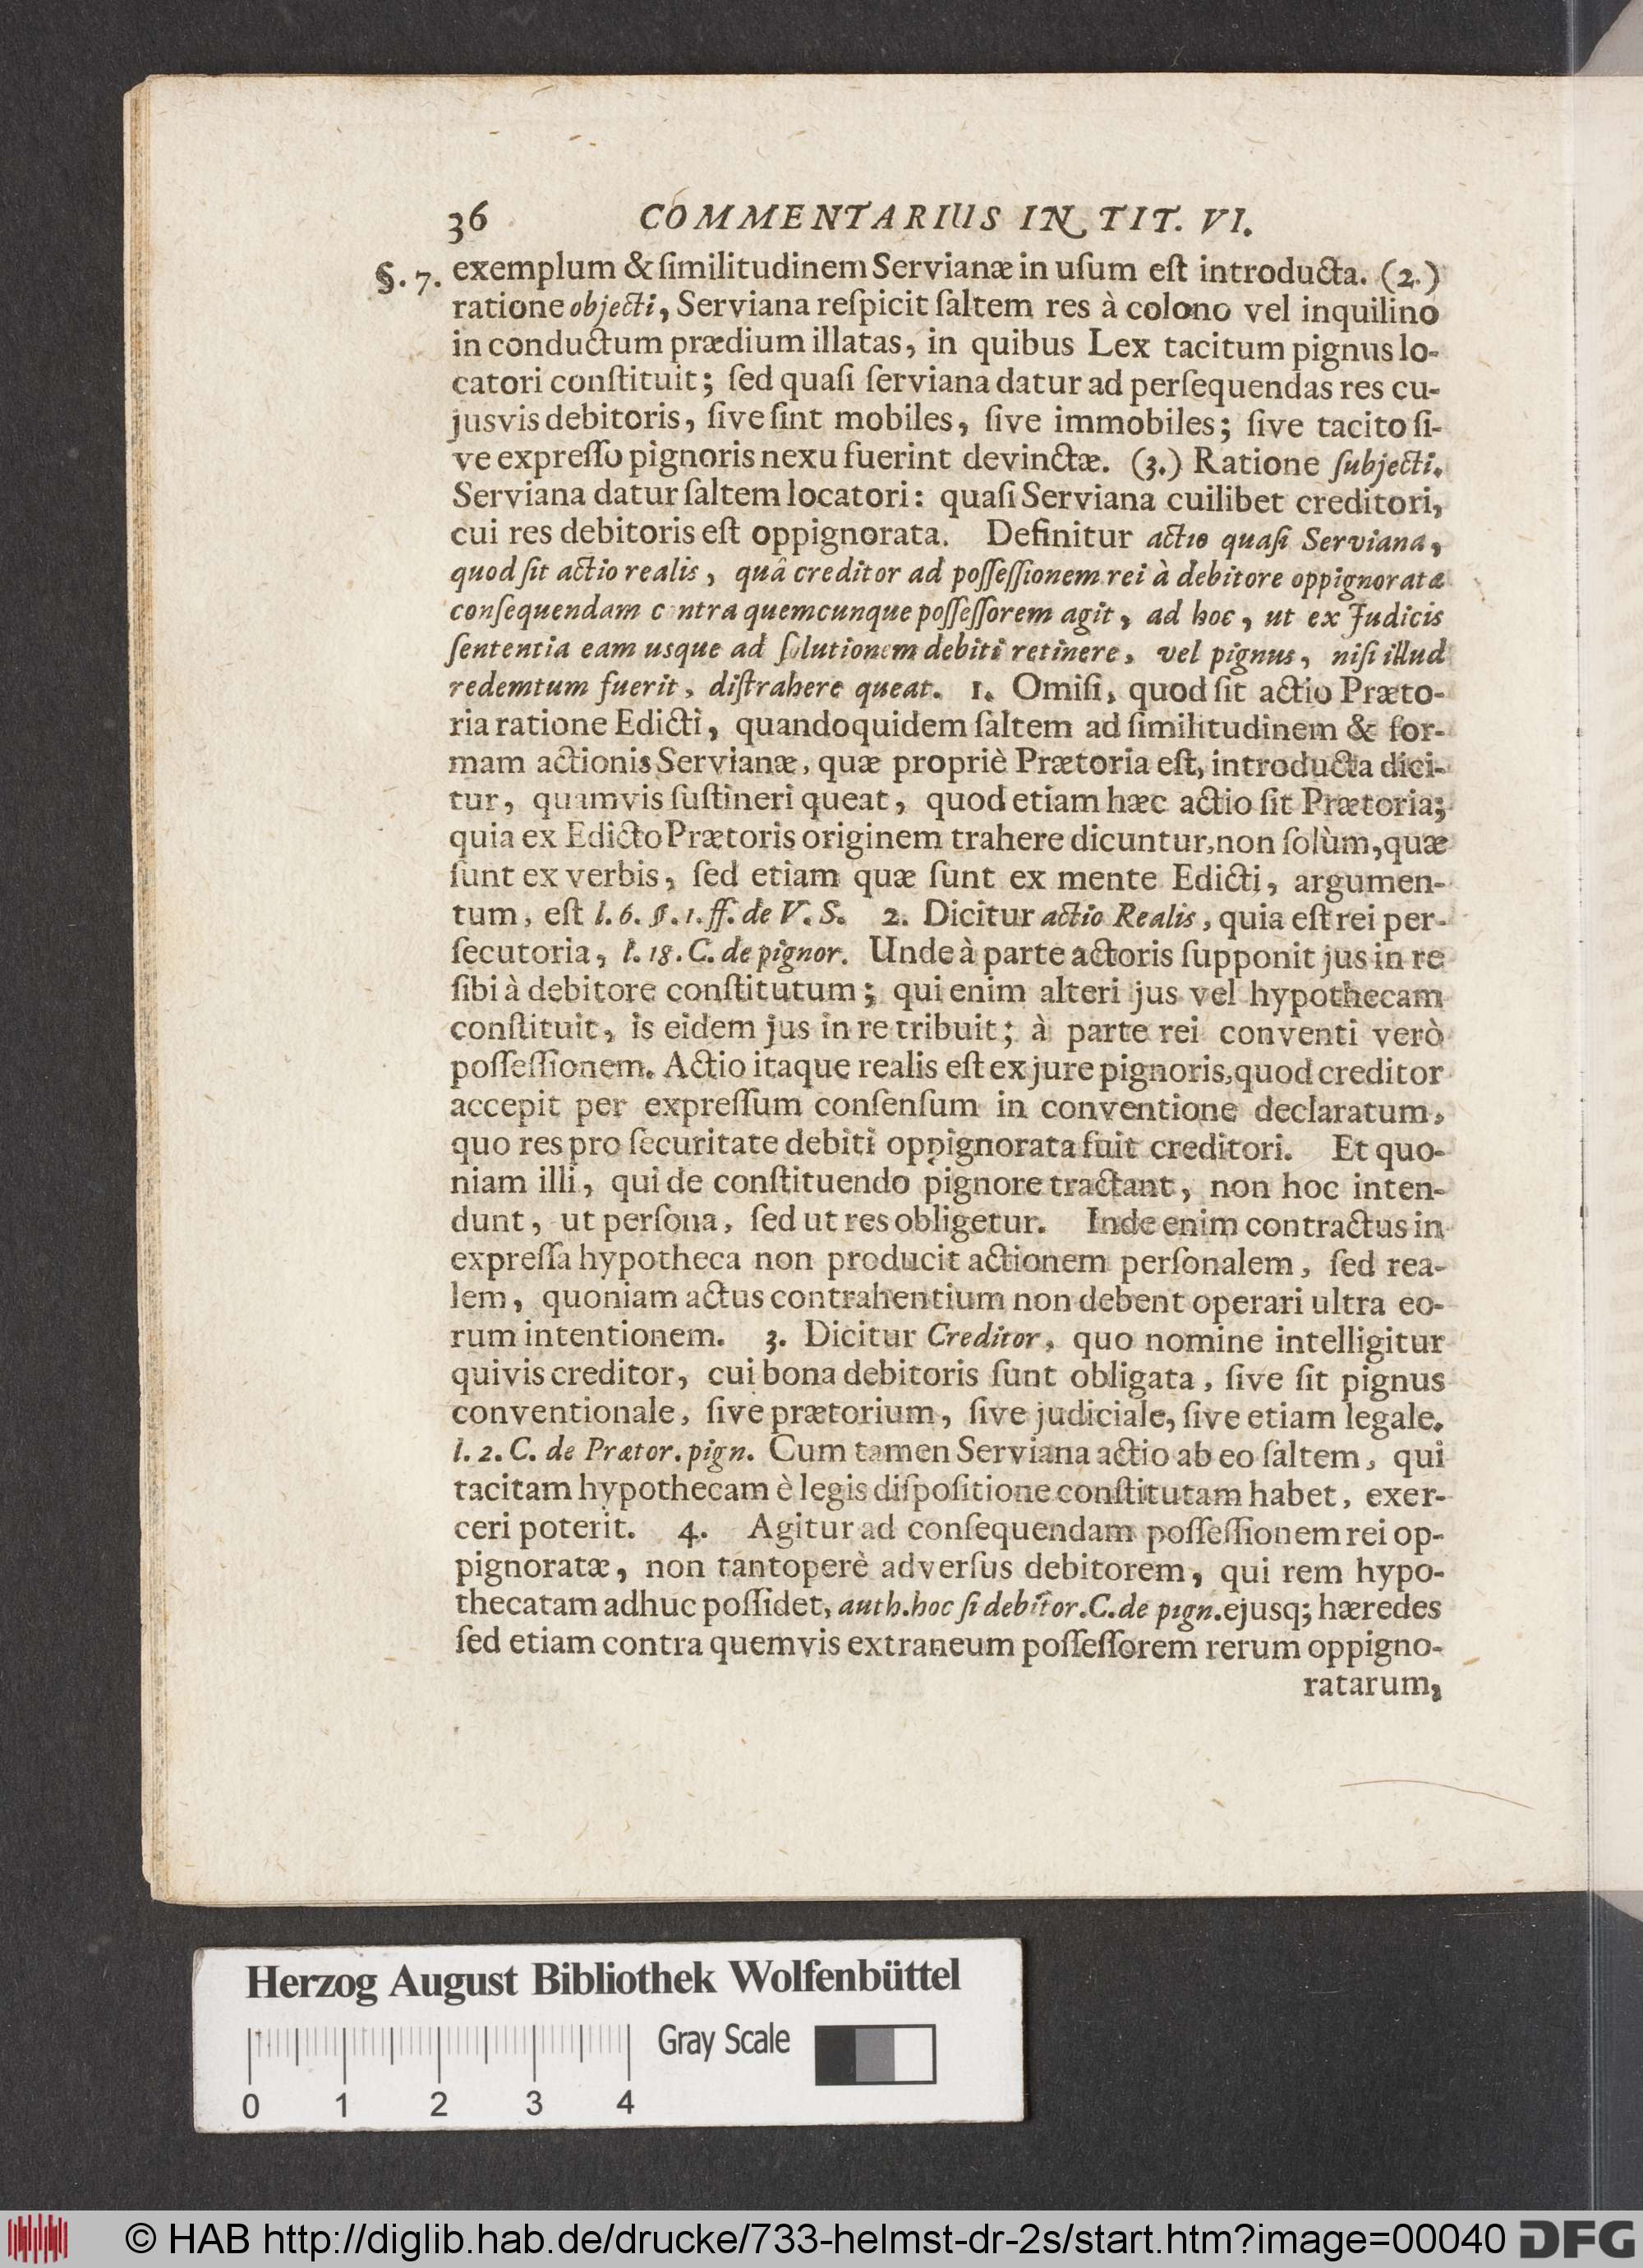 36 COMMENTARIUS IN TIT. VI.
§. 7. exemplum & ſimilitudinem Servianæ in uſum eſt introducta. (2.)
ratione objecti, Serviana reſpicit ſaltem res à colono vel inquilino
in conductum prædium illatas, in quibus Lex tacitum pignus lo-
catori conſtituit; ſed quaſi ſerviana datur ad perſequendas res cu-
jusvis debitoris, ſive ſint mobiles, ſive immobiles; ſive tacito ſi-
ve expreſſo pignoris nexu fuerint devinctæ. (3.) Ratione ſubjecti.
Serviana datur ſaltem locatori: quaſi Serviana cuilibet creditori,
cui res debitoris eſt oppignorata. Definitur actio quaſi Serviana,
quod ſit actio realis, quâ creditor ad poſſeſſionem rei à debitore oppignoratæ
conſequendam c ntra quemcunque poſſeſſorem agit, ad hoc, ut ex Judicis
ſententia eam usque ad ſolutionem debiti retinere, vel pignus, niſi illud
redemtum fuerit, diſtrahere queat. 1. Omiſi, quod ſit actio Præto-
ria ratione Edicti, quandoquidem ſaltem ad ſimilitudinem & for-
mam actionis Servianæ, quæ propriè Prætoria eſt, introducta dici-
tur, quamvis ſuſtineri queat, quod etiam hæc actio ſit Prætoria;
quia ex Edicto Prætoris originem trahere dicuntur, non ſolùm, quæ
ſunt ex verbis, ſed etiam quæ ſunt ex mente Edicti, argumen-
tum, eſt l. 6. §. 1. ff. de V. S. 2. Dicitur actio Realis, quia eſt rei per-
ſecutoria, l. 18. C. de pignor. Unde à parte actoris ſupponit jus in re
ſibi à debitore conſtitutum; qui enim alteri jus vel hypothecam
conſtituit, is eidem jus in re tribuit; à parte rei conventi verò
poſſeſſionem. Actio itaque realis eſt ex jure pignoris, quod creditor
accepit per expreſſum conſenſum in conventione declaratum,
quo res pro ſecuritate debiti oppignorata fuit creditori. Et quo-
niam illi, qui de conſtituendo pignore tractant, non hoc inten-
dunt, ut perſona, ſed ut res obligetur. Inde enim contractus in
expreſſa hypotheca non producit actionem perſonalem, ſed rea-
lem, quoniam actus contrahentium non debent operari ultra eo-
rum intentionem. 3. Dicitur Creditor, quo nomine intelligitur
quivis creditor, cui bona debitoris ſunt obligata, ſive ſit pignus
conventionale, ſive prætorium, ſive judiciale, ſive etiam legale.
l. 2. C. de Prætor. pign. Cum tamen Serviana actio ab eo ſaltem, qui
tacitam hypothecam è legis diſpoſitione conſtitutam habet, exer-
ceri poterit. 4. Agitur ad conſequendam poſſeſſionem rei op-
pignoratæ, non tantoperè adverſus debitorem, qui rem hypo-
thecatam adhuc poſſidet, auth. hoc ſi debitor. C. de pign. ejusq; hæredes
ſed etiam contra quemvis extraneum poſſeſſorem rerum oppigno-
ratarum,
Herzog August Bibliothek Wolfenbüttel
Gray Scale
0 1 2 3 4
© HAB http://diglib.hab.de/drucke/733-helmst-dr-2s/start.htm?image=00040 DFG